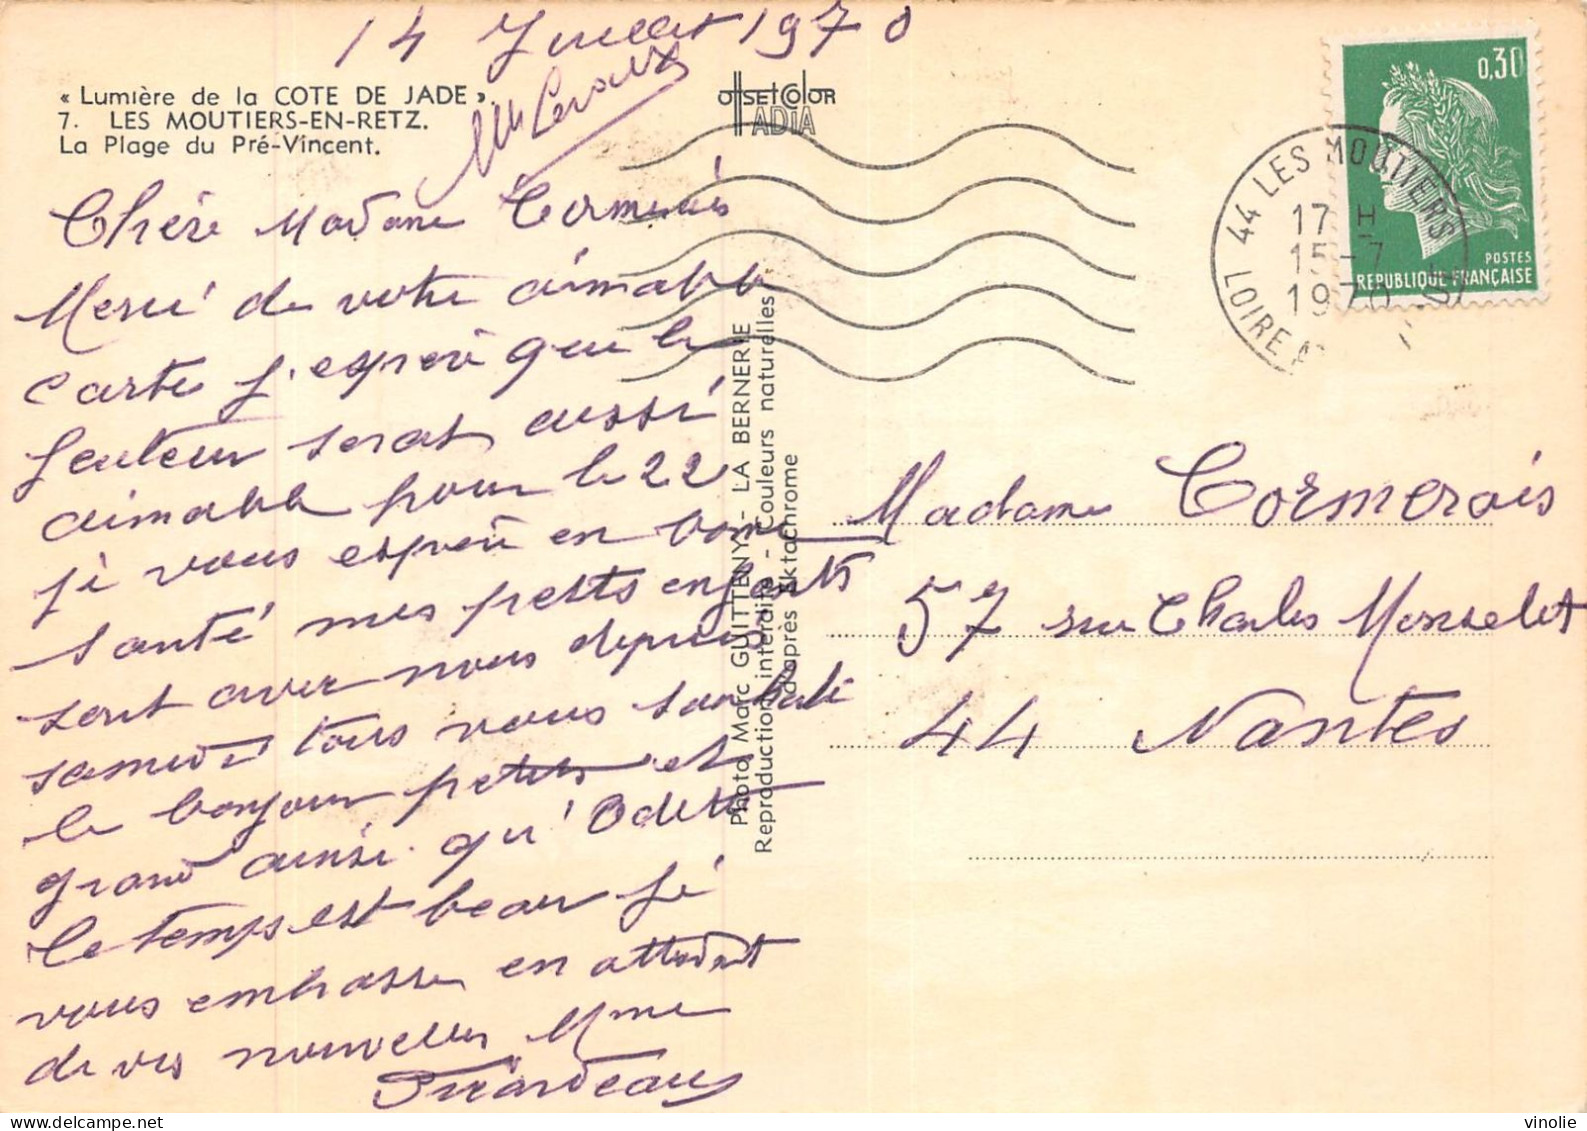 14 Juillet 1970
« Lumière de la COTE DE JADE ».
7. LES MOUTIERS-EN-RETZ.
La Plage du Pré-Vincent.
offset color
ADIA
0,30
POSTES
REPUBLIQUE FRANÇAISE
44 LES MOUTIERS
17 H
15-7
1970
LOIRE A
Chère Madame Cormerais
Merci de votre aimable
carte j'espère que le
facteur serat aussi
aimable pour le 22
je vous espère en bone
santé mes petits enfants
sont avec nous depuis
samedi tous vous souhaite
le bonjour petits et
grand ainsi qu'Odette
le temps est beau je
vous embrasse en attendant
de vos nouvelles Mme
Photo Marc GUITTENY - LA BERNERIE
Reproduction interdite - Couleurs naturelles
d'après Ektachrome
Madame Cormerais
57 rue Charles Monselet
44 Nantes
vinolie / delcampe.net